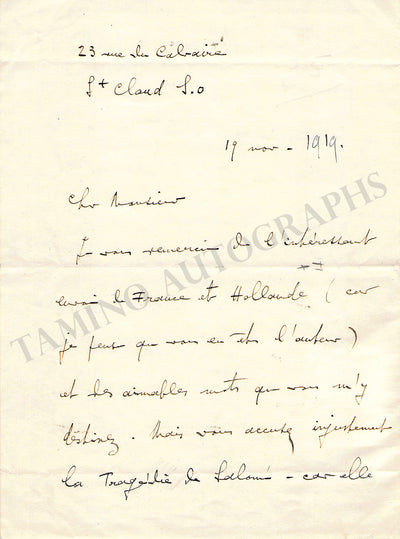 23 rue du Calvaire
St Cloud S.O
19 nov - 1919.
Cher Monsieur
Je vous remercie de l'intéressant
envoi de France et Hollande (car
je pense que vous en êtes l'auteur)
et des aimables mots que vous m'y
destinez. Mais vous accusez injustement
la Tragédie de Salomé - car elle
TAMINO AUTOGRAPHS